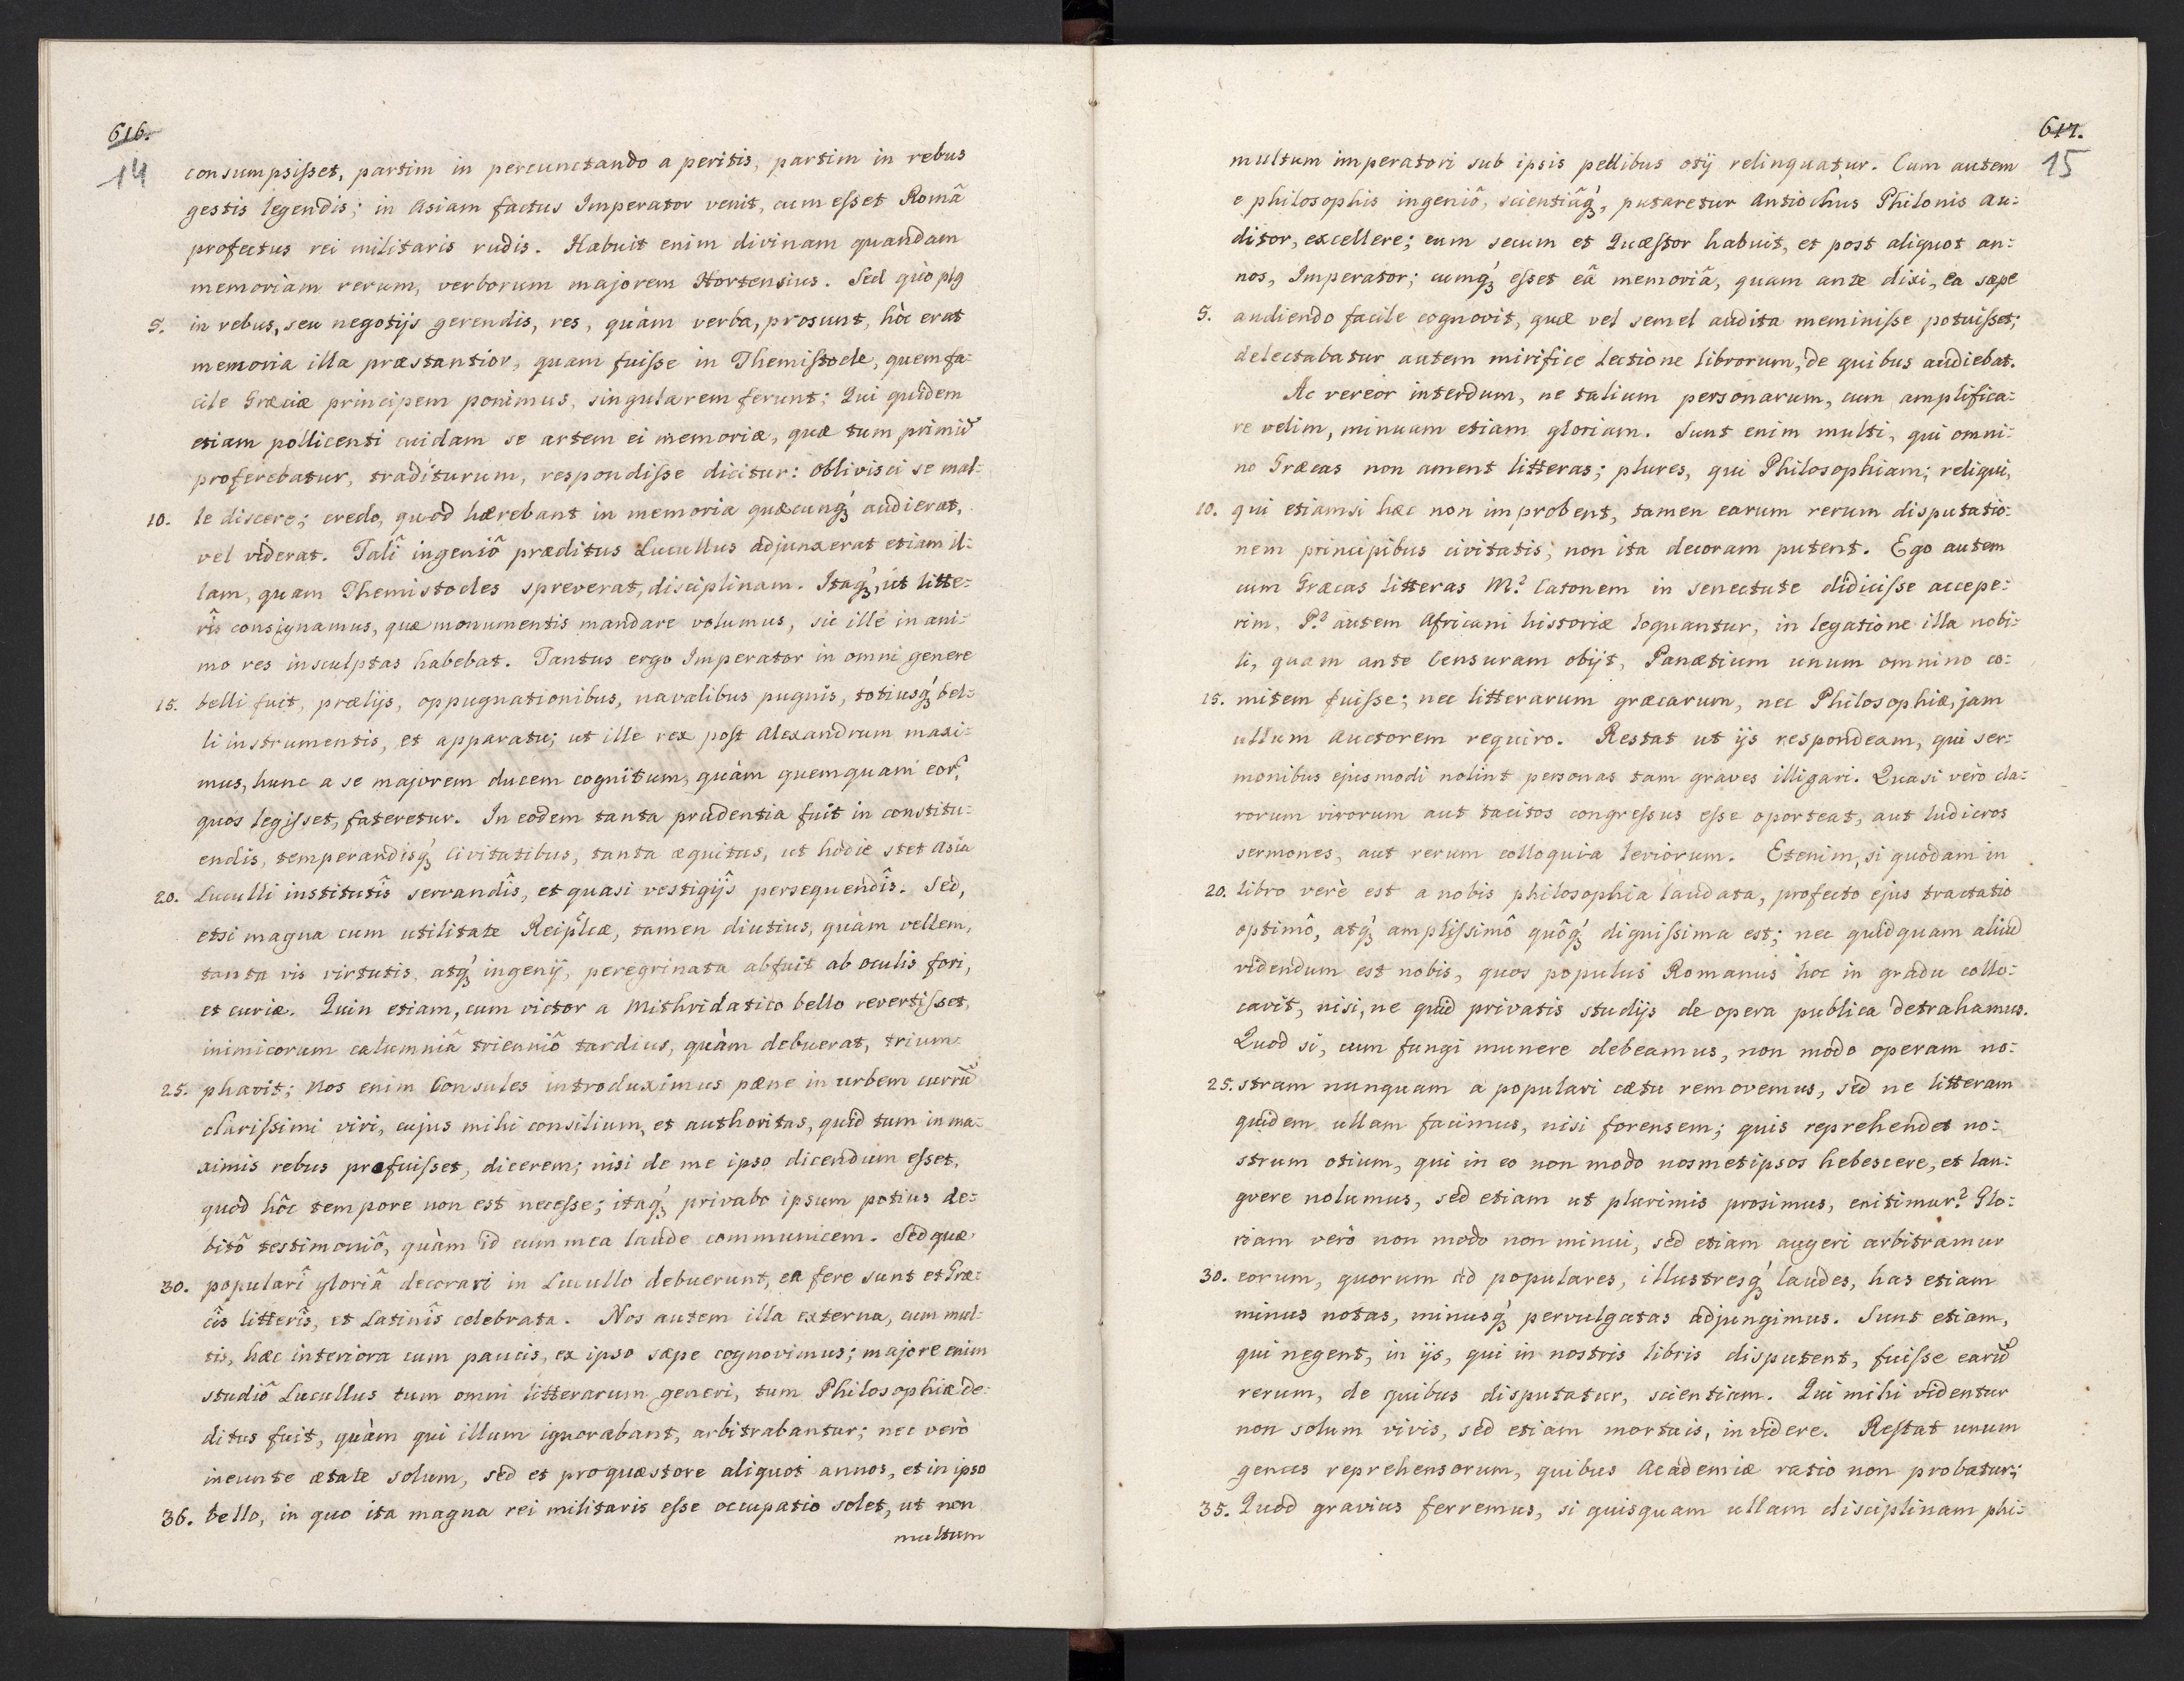 616.
14
consumpsiſset, partim in percunctando a peritis, partim in rebus
gestis legendis; in Asiam factus Imperator venit, cum eſset Româ
profectus rei militaris rudis. Habuit enim divinam quandam
memoriam rerum, verborum majorem Hortensius. Sed quò plꝯ
5. in rebus, seu negotijs gerendis, res, quàm verba, prosunt, hôc erat
memoria illa præstantior, quam fuiſse in Themiſtocle, quem fa:
cile Græciæ principem ponimus, singularem ferunt; Qui quidem
etiam pollicenti cuidam se artem ei memoriæ, quæ tum primū
proferebatur, traditurum, respondiſse dicitur: oblivisci se mal:
10. le discere; credo, quod hærebant in memoria quæcunq́ꝫ audierat,
vel viderat. Talî ingeniô præditus Lucullus adjunxerat etiam il:
lam, quam Themistocles spreverat, disciplinam. Itaq́ꝫ, ut litte:
rîs consignamus, quæ monumentis mandare volumus, sic ille in ani:
mo res insculptas habebat. Tantus ergo Imperator in omni genere
15. belli fuit, prælijs, oppugnationibus, navalibus pugnis, totiusq́ꝫ bel:
li instrumentis, et apparatu; ut ille rex poſt Alexandrum maxi:
mus, hunc a se majorem ducem cognitum, quàm quemquam eor̃,
quos legiſset, fateretur. In eodem tanta prudentia fuit in constitu:
endis, temperandisq́ꝫ civitatibus, tanta æquitas, ut hodie stet Asia
20. Luculli institutîs servandîs, et quasi vestigijs persequendîs. Sed,
etsi magna cum utilitate Reip̃lcæ, tamen diutius, quàm vellem,
tanta vis virtutis, atq́ꝫ ingenij, peregrinata abfuit ab oculis fori,
et curiæ. Quin etiam, cum victor a Mithridatico bello revertiſset,
inimicorum calumniâ trienniô tardius, quàm debuerat, trium:
25. phavit; Nos enim Consules introduximus pæne in urbem currū
clariſsimi viri, cujus mihi consilium, et authoritas, quid tum in ma:
ximis rebus profuiſset, dicerem; nisi de me ipso dicendum eſset,
quod hôc tempore non est neceſse; itaq́ꝫ privabo ipsum potius de:
bitô testimoniô, quàm id cum mea laude communicem. Sed quæ
30. popularî gloriâ decorari in Lucullo debuerunt, ea fere sunt et Græ:
cîs litterîs, et Latinîs celebrata. Nos autem illa externa, cum mul:
tis, hæc interiora cum paucis, ex ipso sæpe cognovimus; majore enim
studiô Lucullus tum omni litterarum generi, tum Philosophiæ de:
ditus fuit, quàm qui illum ignorabant, arbitrabantur; nec verò
ineunte ætate solum, sed et proquæstore aliquot annos, et in ipso
36. bello, in quo ita magna rei militaris eſse occupatio solet, ut non
multum
617.
15
multum imperatori sub ipsis pellibus otij relinquatur. Cum autem
e philosophis ingeniô, scientiâq́ꝫ, putaretur Antiochus Philonis au:
ditor, excellere; eum secum et Quæſtor habuit, et post aliquot an:
nos, Imperator; cumq́ꝫ eſset eâ memoriâ, quam ante dixi, ea sæpe
5. audiendo facile cognovit, quæ vel semel audita meminiſse potuiſset;
delectabatur autem mirifice lectione librorum, de quibus audiebat.
Ac vereor interdum, ne talium personarum, cum amplifica:
re velim, minuam etiam gloriam. Sunt enim multi, qui omni:
no Græcas non ament litteras; plures, qui Philosophiam; reliqui,
10. qui etiamsi hæc non improbent, tamen earum rerum disputatio:
nem principibus civitatis, non ita decoram putent. Ego autem
cum Græcas litteras M.? Catonem in senectute didiciſse accepe:
rim, P.? autem Africani historiæ loquantur, in legatione illa nobi:
li, quam ante Censuram obijt, Panætium unum omnino co:
15. mitem fuiſse; nec litterarum græcarum, nec Philosophiæ, jam
ullum auctorem requiro. Restat ut ijs respondeam, qui ser:
monibus ejusmodi nolint personas tam graves illigari. Quasi verò cla:
rorum virorum aut tacitos congreſsus eſse oporteat, aut ludicros
sermones, aut rerum colloquia leviorum. Etenim, si quodam in
20. libro verè est a nobis philosophia laudata, profecto ejus tractatio
optimô, atq́ꝫ ampliſsimô quôq́ꝫ digniſsima est; nec quidquam aliud
videndum est nobis, quos populus Romanus hoc in gradu collo:
cavit, nisi, ne quid privatis studijs de opera publica detrahamus.
Quod si, cum fungi munere debeamus, non modo operam no:
25. stram nunquam a populari cætu removemus, sed ne litteram
quidem ullam facimus, nisi forensem; quis reprehendet no:
strum otium, qui in eo non modo nosmetipsos hebescere, et lan:
gvere nolumus, sed etiam ut plurimis prosimus, enitimur? Glo:
riam verò non modo non minui, sed etiam augeri arbitramur
30. eorum, quorum ad populares, illustresq́ꝫ laudes, has etiam
minus notas, minusq́ꝫ pervulgatas adjungimus. Sunt etiam,
qui negent, in ijs, qui in nostris libris disputent, fuiſse earū
rerum, de quibus disputatur, scientiam. Qui mihi videntur
non solum vivis, sed etiam mortuis, invidere. Reſtat unum
genus reprehensorum, quibus Academiæ ratio non probatur;
35. Quod gravius ferremus, si quisquam ullam disciplinam phi: